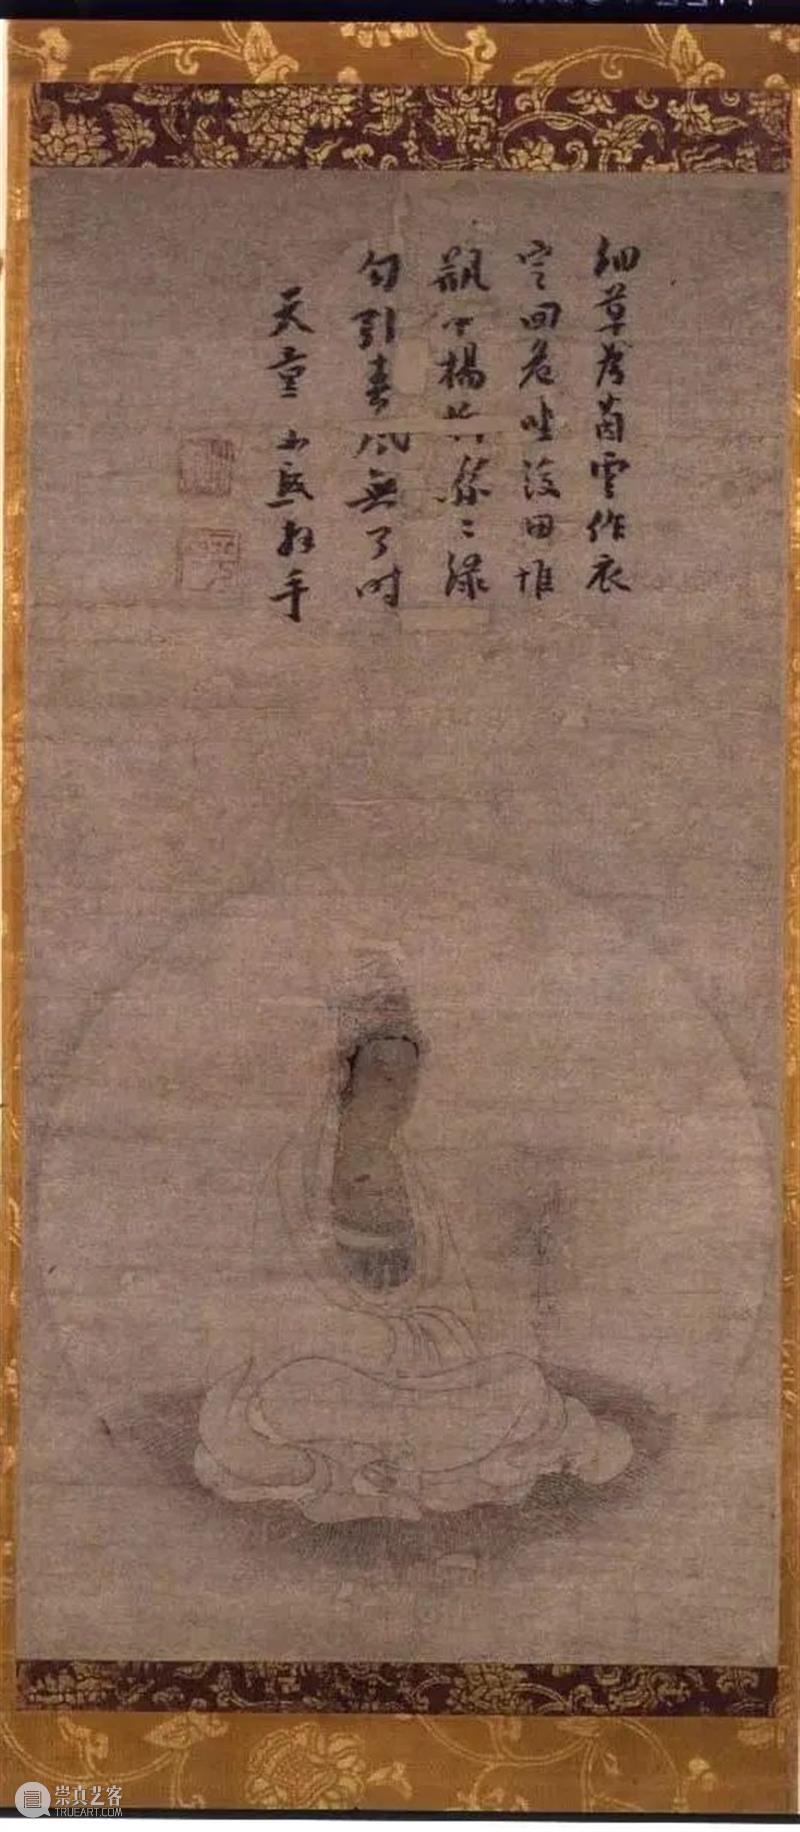 細草為茵雲作衣
定回危坐沒思惟
瓶中楊柳絲〻綠
勾引春風無了時
天童拜手
崇真艺客
TRUEART.COM